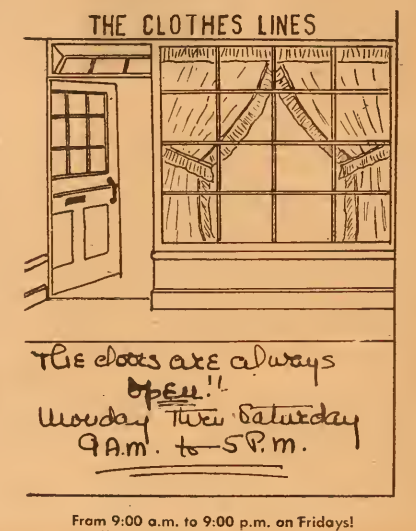 THE CLOTHES LINES
THE doors are always
OPEN!!
Monday thru Saturday
9 A.M. to 5 P.M.
From 9:00 a.m. to 9:00 p.m. on Fridays!